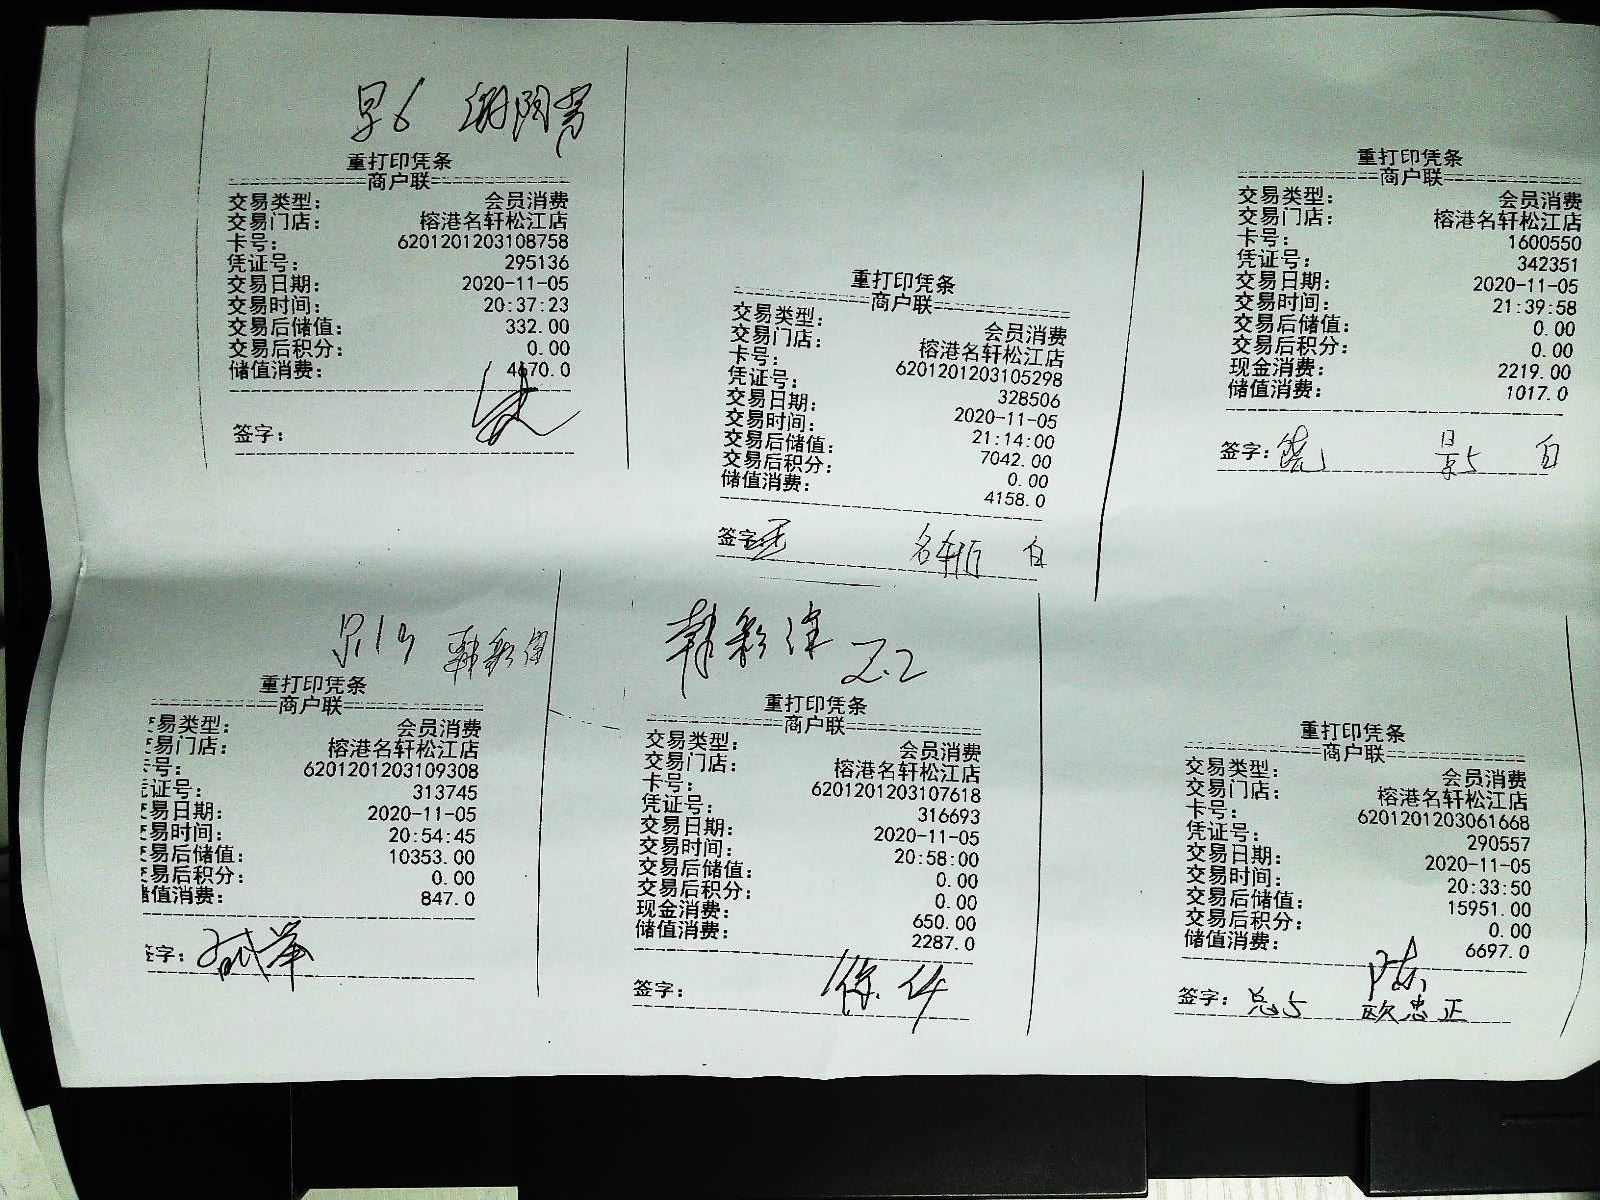 重打印凭条
商户联
交易类型： 会员消费
交易门店： 榕港名轩松江店
卡号： 6201201203108758
凭证号： 295136
交易日期： 2020-11-05
交易时间： 20:37:23
交易后储值： 332.00
交易后积分： 0.00
储值消费： 4670.0
签字：
重打印凭条
商户联
交易类型： 会员消费
交易门店： 榕港名轩松江店
卡号： 6201201203105298
凭证号： 328506
交易日期： 2020-11-05
交易时间： 21:14:00
交易后储值： 7042.00
交易后积分： 0.00
储值消费： 4158.0
签字
重打印凭条
商户联
交易类型： 会员消费
交易门店： 榕港名轩松江店
卡号： 1600550
凭证号： 342351
交易日期： 2020-11-05
交易时间： 21:39:58
交易后储值： 0.00
交易后积分： 0.00
现金消费： 2219.00
储值消费： 1017.0
签字：
重打印凭条
商户联
交易类型： 会员消费
交易门店： 榕港名轩松江店
卡号： 6201201203109308
凭证号： 313745
交易日期： 2020-11-05
交易时间： 20:54:45
交易后储值： 10353.00
交易后积分： 0.00
储值消费： 847.0
签字：
重打印凭条
商户联
交易类型： 会员消费
交易门店： 榕港名轩松江店
卡号： 6201201203107618
凭证号： 316693
交易日期： 2020-11-05
交易时间： 20:58:00
交易后储值： 0.00
交易后积分： 0.00
现金消费： 650.00
储值消费： 2287.0
签字：
重打印凭条
商户联
交易类型： 会员消费
交易门店： 榕港名轩松江店
卡号： 6201201203061668
凭证号： 290557
交易日期： 2020-11-05
交易时间： 20:33:50
交易后储值： 15951.00
交易后积分： 0.00
储值消费： 6697.0
签字： 总5 欧忠正